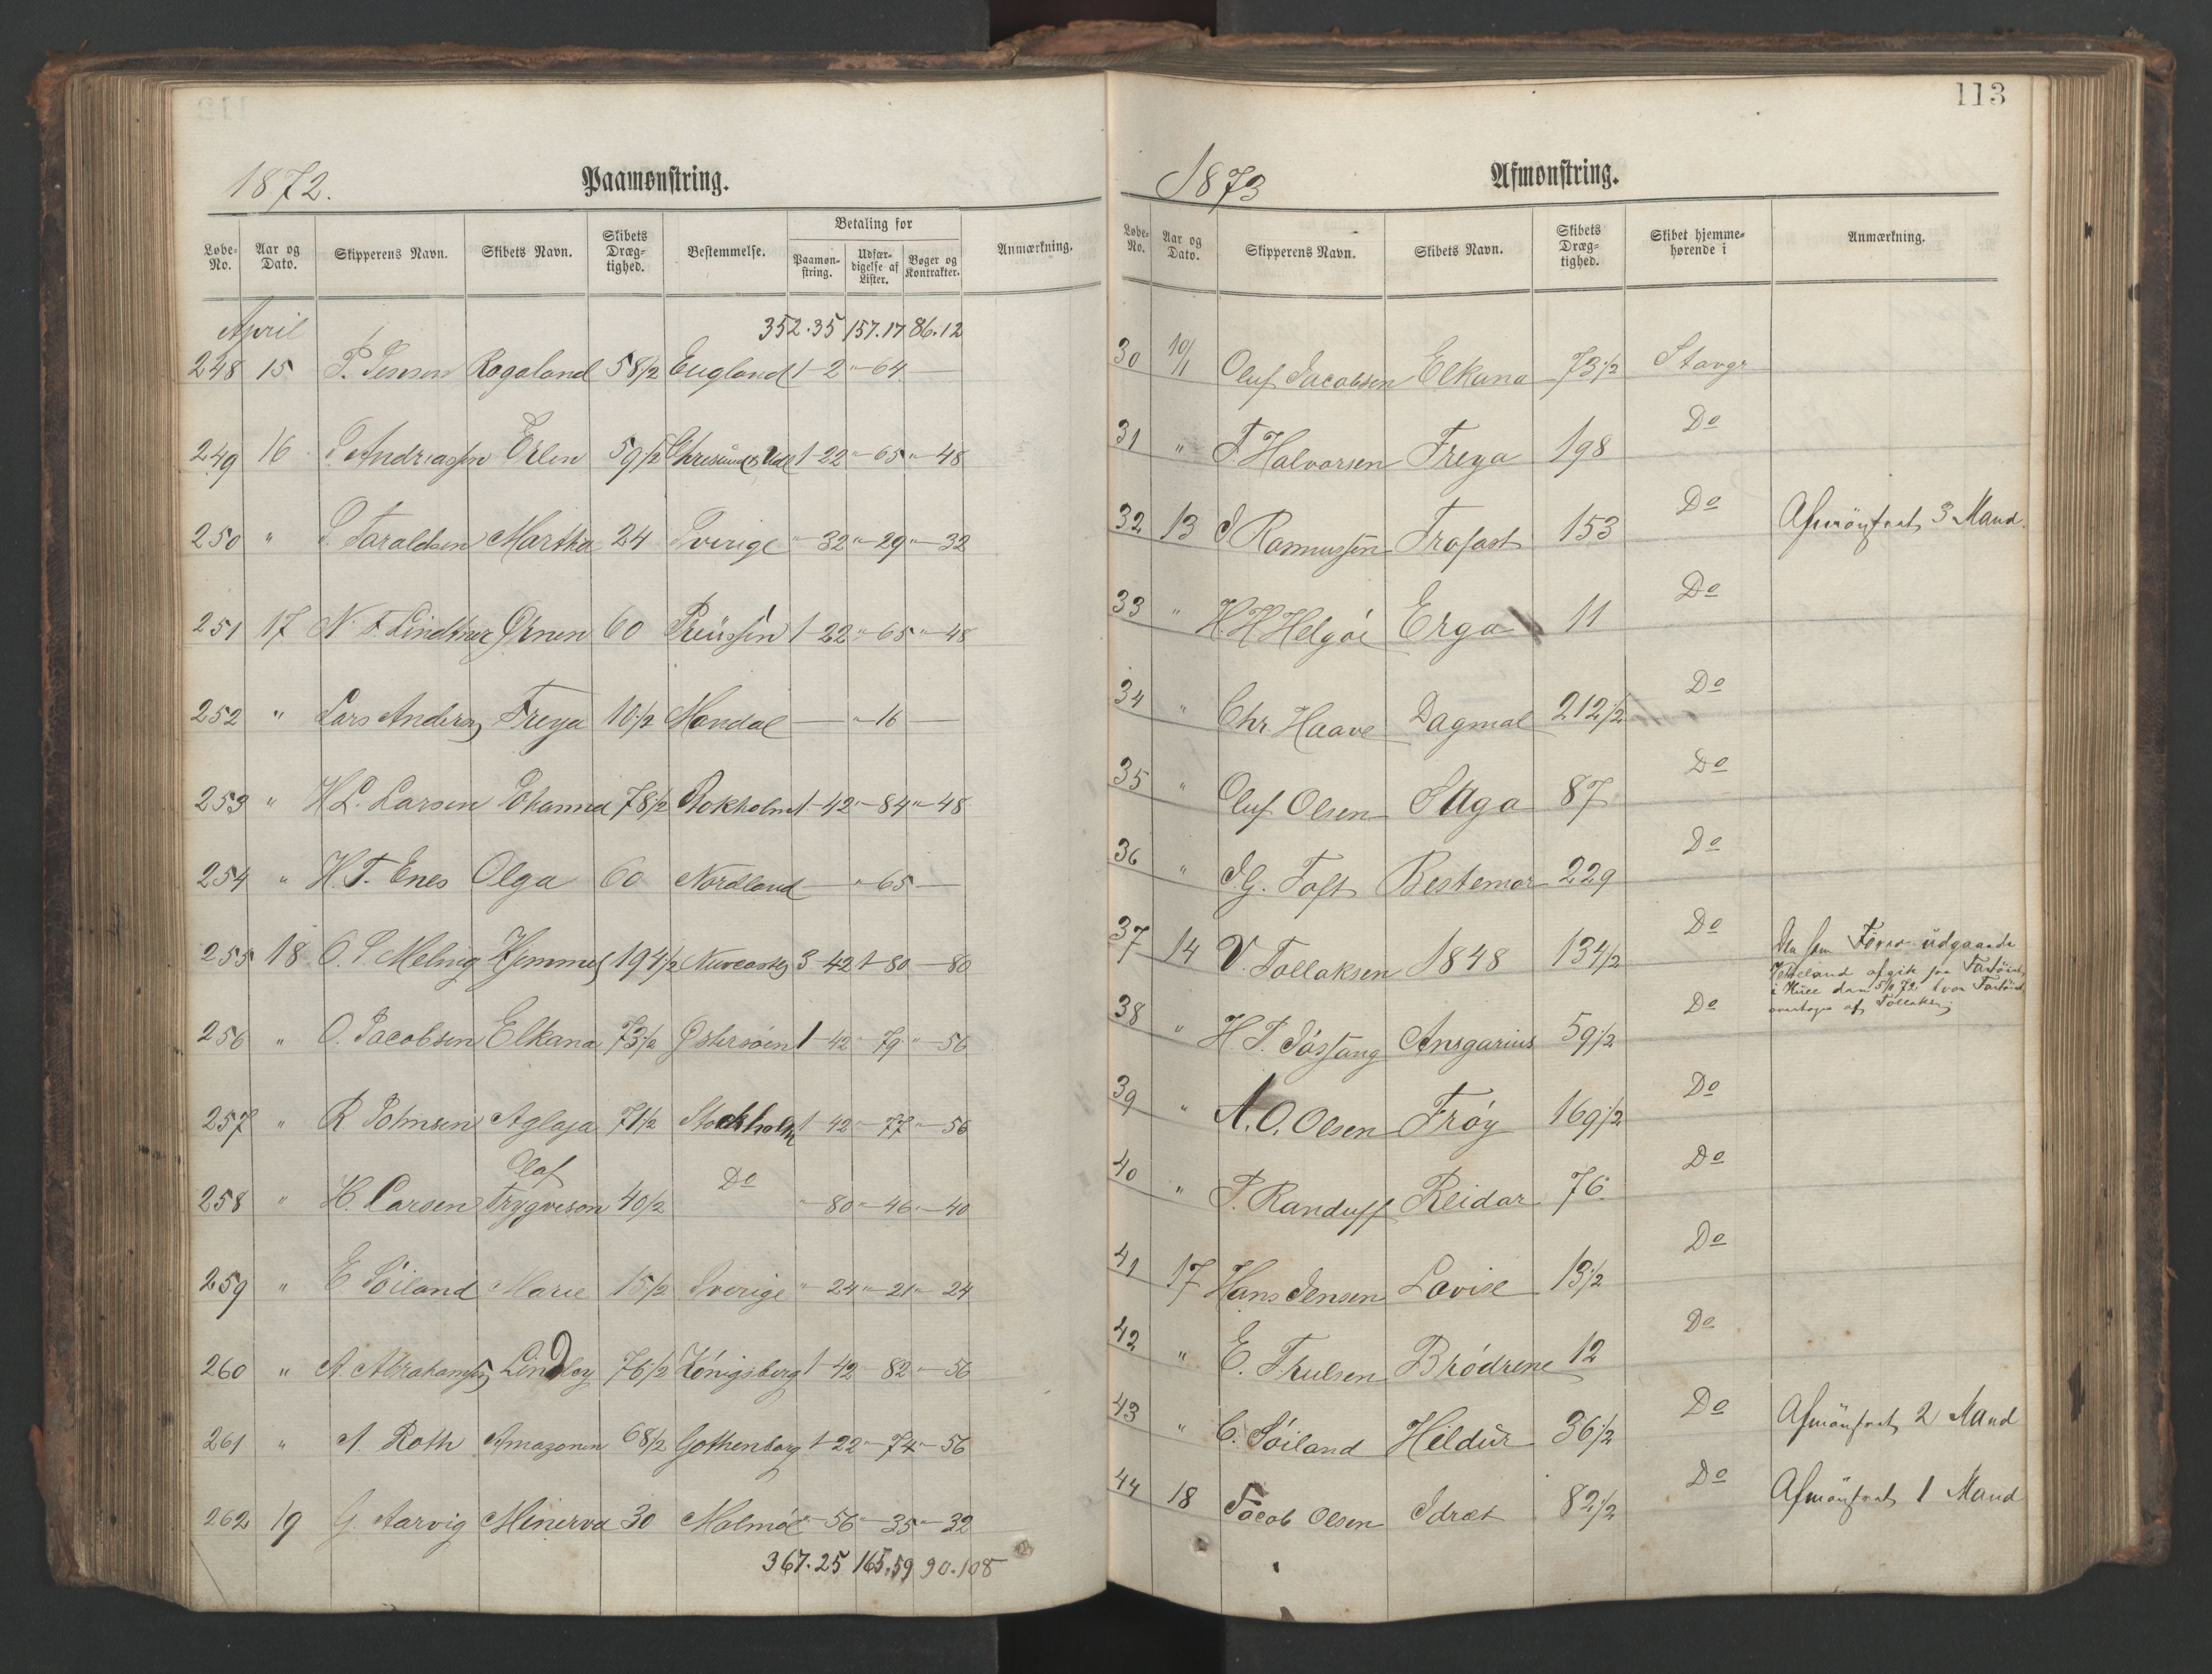 1872.
Paamønstring.
Løbe-No.
Aar og Dato.
Skipperens Navn.
Skibets Navn.
Skibets Dræg-tighed.
Bestemmelse.
Betaling for
Paamøn-string.
Udfær-digelse af Lister.
Bøger og Kontrakter.
Anmærkning.
April 352.35 157.17 86.12
248 15 P. Jensen Rogaland 58½ England 1-2 "-64 —
249 16 Andreassen Erlen 59½ 1-22 "-65 "-48
250 " Taraldsen Martha 24 Sverige "-32 "-29 "-32
251 17 N. F. Lindtner Ørnen 60 Preussen 1-22 "-65 "-48
252 " Lars Andersen Freya 10½ Mandal — "-16 —
253 " H L. Larsen Johanna 78½ Stokholm 1-42 "-84 "-48
254 " H. T. Enes Olga 60 Nordland — "-65 —
255 18 O. S. Meling Hjemmel 194½ 3-42 1-80 "-80
256 " O. Jacobsen Elkana 73½ Østersøen 1-42 "-79 "-56
257 " R Johnsen Aglaja 71½ Stockholm 1-42 "-77 "-56
258 " H. Larsen Olaf Trygveson 40½ Do "-80 "-46 "-40
259 " E Soiland Marie 15½ Sverige "-24 "-21 "-24
260 " A. Abrahamsen Lindløy 76½ Königsberg 1-42 "-82 "-56
261 " A. Roth Amazonen 68½ Gothenborg 1-22 "-74 "-56
262 19 G. Aarvig Minerva 30 Malmöe "-56 "-35 "-32
367.25 165.59 90.108
113
1873
Afmønstring.
Løbe-No.
Aar og Dato.
Skipperens Navn.
Skibets Navn.
Skibets Dræg-tighed.
Skibet hjemme-hørende i
Anmærkning.
30 10/1 Oluf Jacobsen Elkana 73½ Stavgr
31 " T. Halvorsen Freya 198 Do
32 13 J Rasmussen Trofast 153 Do Afmönstret 3 Mand.
33 " H. H Helgöe Erga 11 Do
34 " Chr. Haave Dagmal 212½ Do
35 " Oluf Olsen Saga 87 Do
36 " J. G. Toft Bestemor 229 Do
37 14 V. Tollaksen 1848 134½ Do Den som Förer udgaaende
afgik fra Fartöiet
i Hull den 5/11 72 hvor Fartöiet
overtoges af Tollaksen
38 " H. T. Ansgarius 59½ Do
39 " A. O. Olsen Fröy 169½ Do
40 " P. Randuff Reidar 76 Do
41 17 Hans Jensen Lovise 13½ Do
42 " E. Thulsen Brödrene 12 Do
43 " C. Söiland Hildur 36½ Do Afmönstret 2 Mand
44 18 Jacob Olsen Idræt 82½ Do Afmönstret 1 Mand